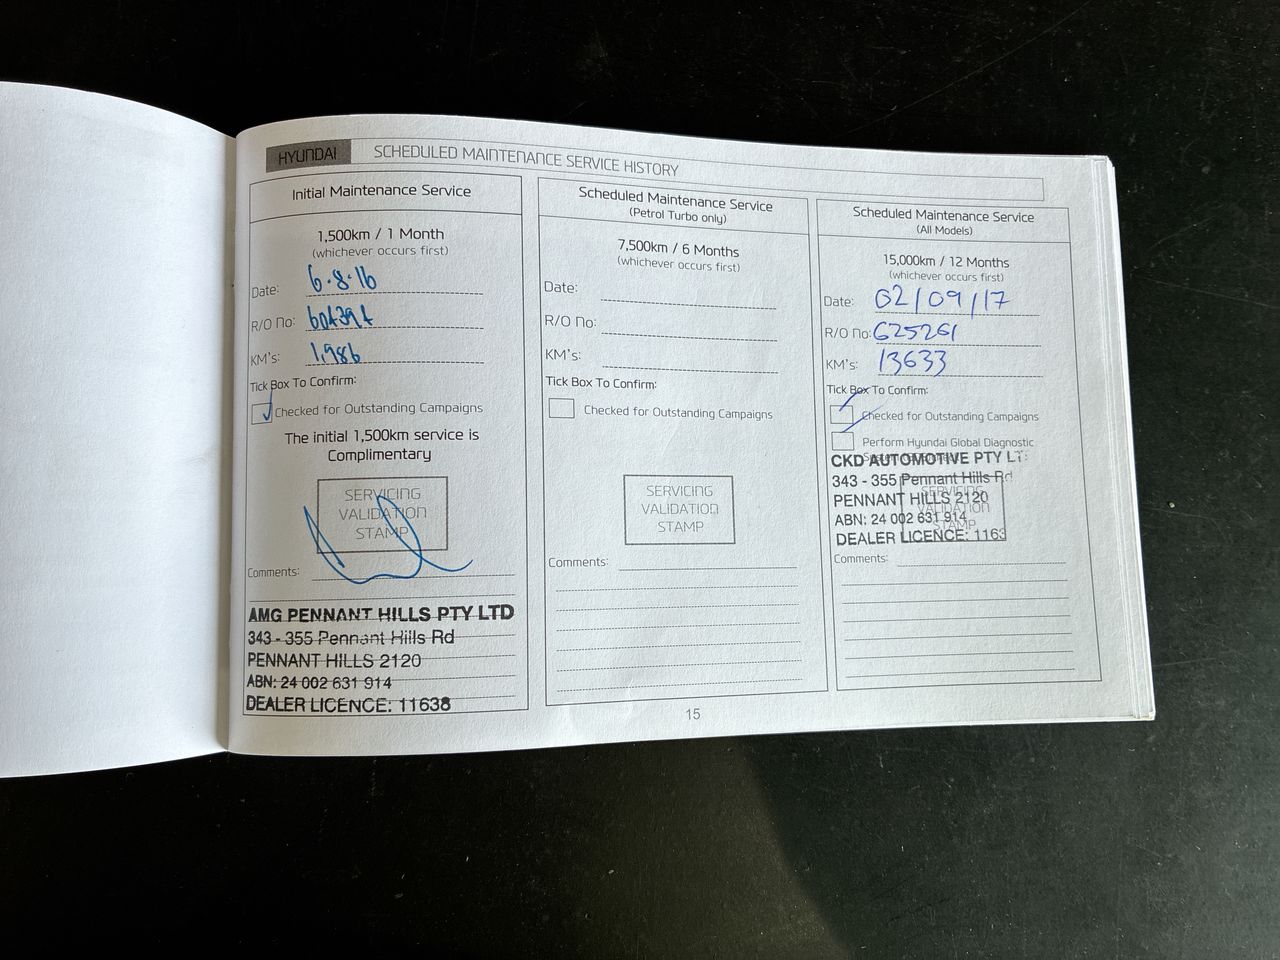 HYUNDAI SCHEDULED MAINTENANCE SERVICE HISTORY
Initial Maintenance Service
1,500km / 1 Month
(whichever occurs first)
Date: 6.8.16
R/O No:
KM's: 1,986
Tick Box To Confirm:
Checked for Outstanding Campaigns
The initial 1,500km service is
Complimentary
SERVICING
VALIDATION
STAMP
Comments:
AMG PENNANT HILLS PTY LTD
343 - 355 Pennant Hills Rd
PENNANT HILLS 2120
ABN: 24 002 631 914
DEALER LICENCE: 11638
Scheduled Maintenance Service
(Petrol Turbo only)
7,500km / 6 Months
(whichever occurs first)
Date:
R/O No:
KM's:
Tick Box To Confirm:
Checked for Outstanding Campaigns
SERVICING
VALIDATION
STAMP
Comments:
Scheduled Maintenance Service
(All Models)
15,000km / 12 Months
(whichever occurs first)
Date: 02/09/17
R/O No: 625261
KM's: 13633
Tick Box To Confirm:
Checked for Outstanding Campaigns
Perform Hyundai Global Diagnostic
CKD AUTOMOTIVE PTY LT
343 - 355 Pennant Hills Rd
PENNANT HILLS 2120
ABN: 24 002 631 914
DEALER LICENCE: 1163
SERVICING
VALIDATION
STAMP
Comments:
15